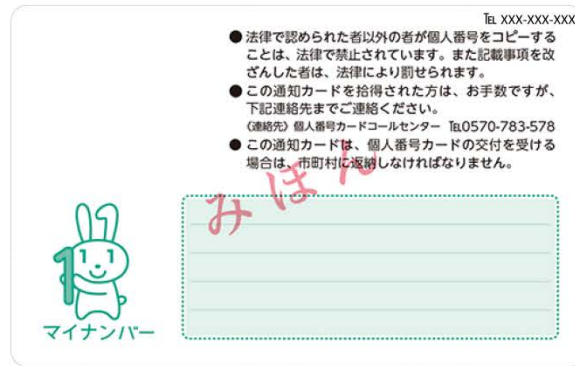 ℡ XXX-XXX-XXX
●法律で認められた者以外の者が個人番号をコピーする
ことは、法律で禁止されています。また記載事項を改
ざんした者は、法律により罰せられます。
●この通知カードを拾得された方は、お手数ですが、
下記連絡先までご連絡ください。
〈連絡先〉個人番号カードコールセンター ℡0570-783-578
●この通知カードは、個人番号カードの交付を受ける
場合は、市町村に返納しなければなりません。
みほん
1
マイナンバー